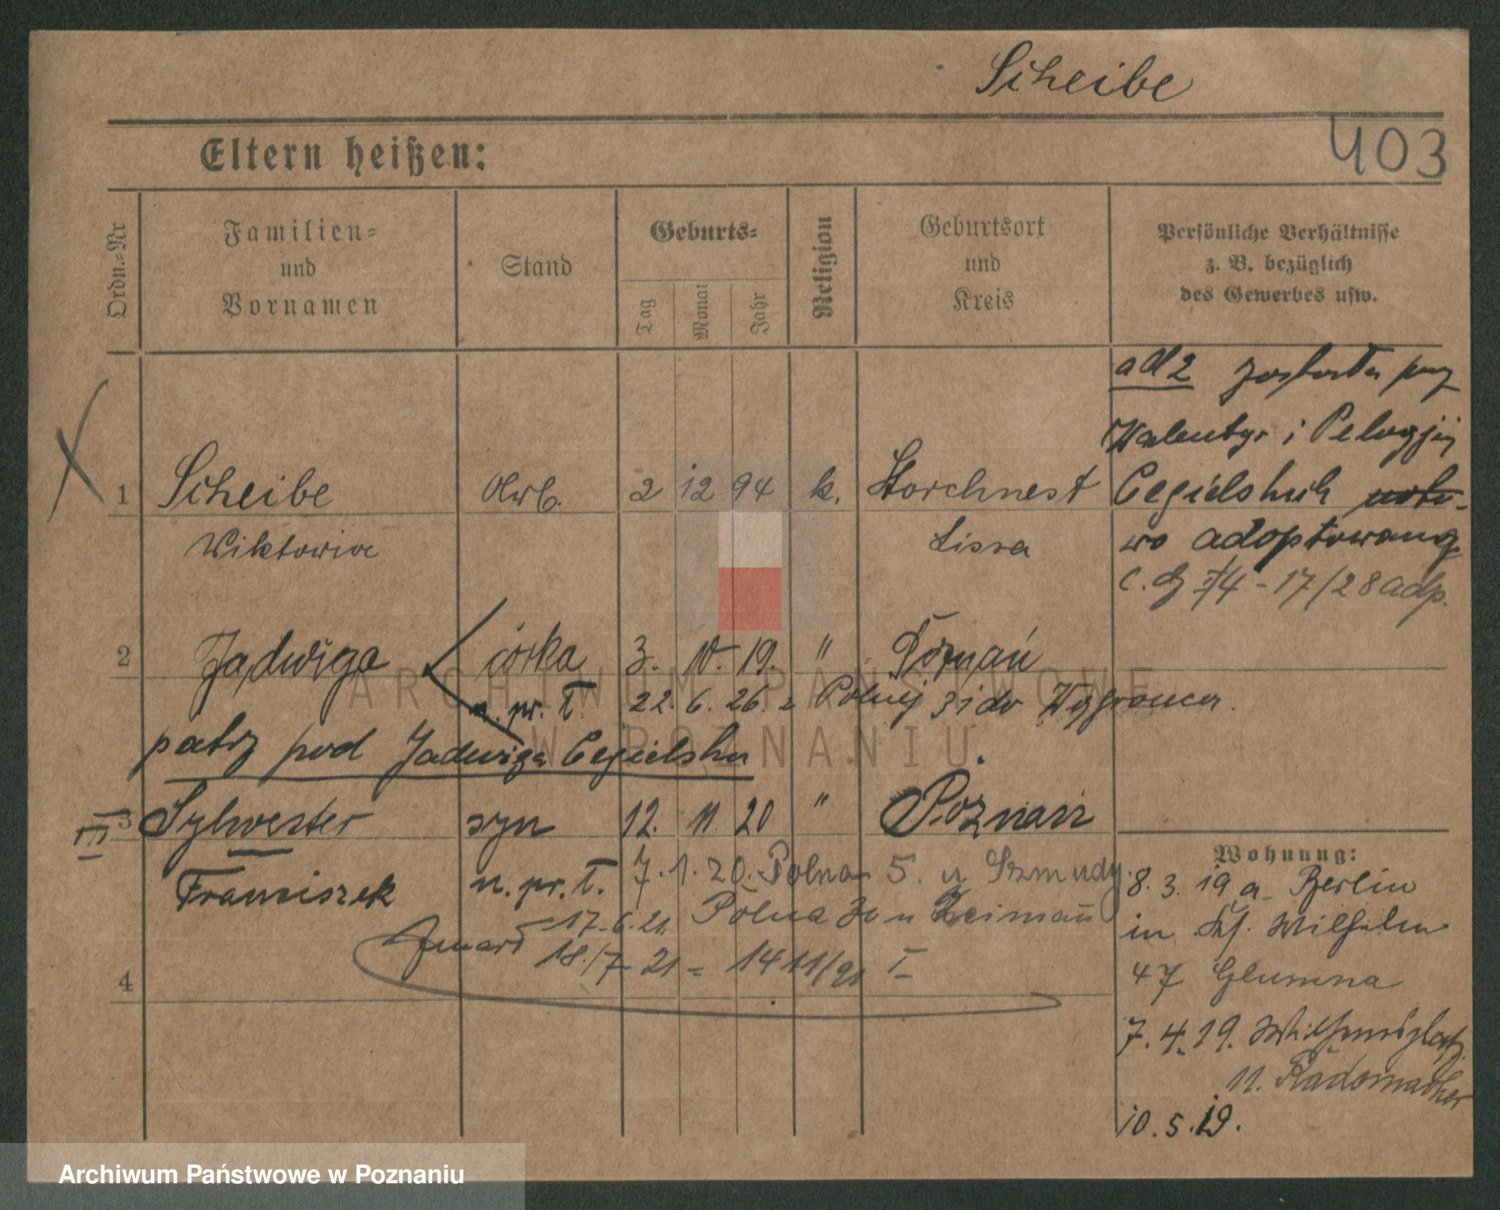 Scheibe
403
Eltern heißen:
Ordn.-Nr
Familien-
und
Vornamen
Stand
Geburts-
Tag
Monat
Jahr
Religion
Geburtsort
und
Kreis
Persönliche Verhältnisse
z. B. bezüglich
des Gewerbes usw.
ad 2 została prz
Walentyn i Pelagji
1 Scheibe 2 12 94 k. Storchnest
Cegielskich
Wiktoria Lissa
wo adoptowaną
2 Jadwiga córka 3. 10. 19. " Poznań
n. pr. T. 22. 6. 26. z Polnej 31 do
patrz pod Jadwiga Cegielska
III
3 Sylwester syn 12. 11 20 " Poznań
Franciszek n. pr. T. 7. 1. 20. Polna 5. u Szmudy
17-6.21 Polna
Zmarł 18./7 21 = 1411/21 I
4
Wohnung:
8. 3. 19 a Berlin
in Wilhelm
47 Glumna
7. 4. 19.
11. Radomacher
10. 5. 19.
ARCHIWUM PAŃSTWOWE
W POZNANIU
Archiwum Państwowe w Poznaniu